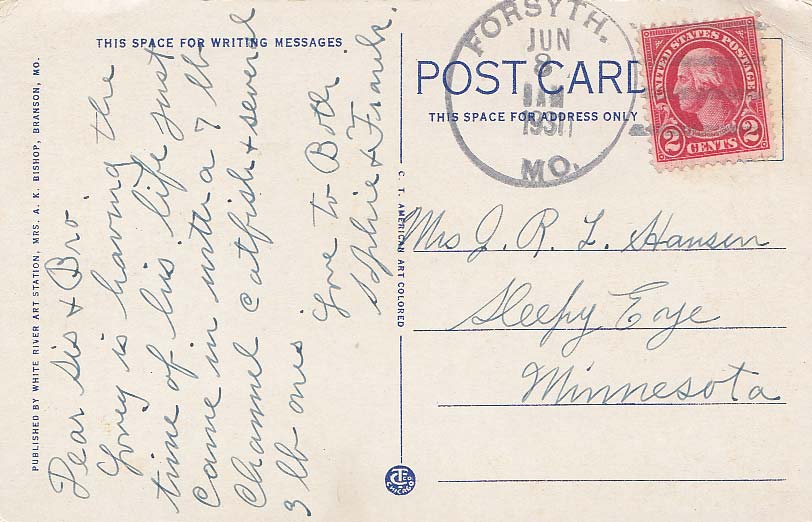 THIS SPACE FOR WRITING MESSAGES
PUBLISHED BY WHITE RIVER ART STATION, MRS. A. K. BISHOP, BRANSON, MO.
Dear Sis & Bro.
is having the
time of his life just
came in with a 7 lb
Channel catfish & several
3 lb ones
Love to Both
Sophie & Frank.
C. T. AMERICAN ART COLORED
POST CARD
THIS SPACE FOR ADDRESS ONLY
FORSYTH.
JUN
8
AM
1931
MO.
UNITED STATES POSTAGE
2 CENTS 2
Mrs J. R. L. Hansen
Sleepy Eye
Minnesota
CHICAGO